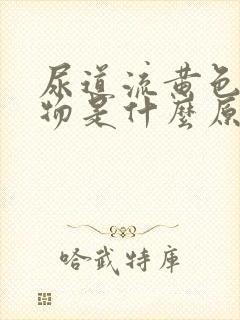 尿道流黄色
物是什麼原
哈武特庫